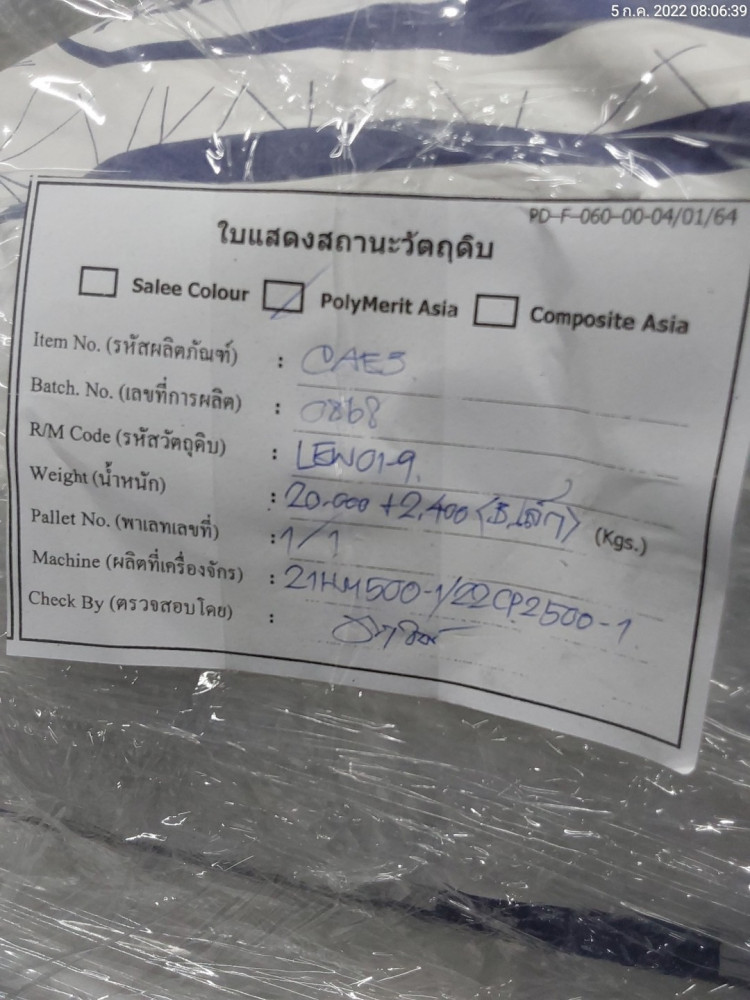 5 ก.ค. 2022 08:06:39
PD-F-060-00-04/01/64
ใบแสดงสถานะวัตถุดิบ
Salee Colour PolyMerit Asia Composite Asia
Item No. (รหัสผลิตภัณฑ์) : CAE3
Batch. No. (เลขที่การผลิต) : 0868
R/M Code (รหัสวัตถุดิบ) : LEW01-9
Weight (น้ำหนัก) : 20.000 + 2.400 (Kgs.)
Pallet No. (พาเลทเลขที่) : 1/1
Machine (ผลิตที่เครื่องจักร) : 21HM500-1/22CP2500-1
Check By (ตรวจสอบโดย) :